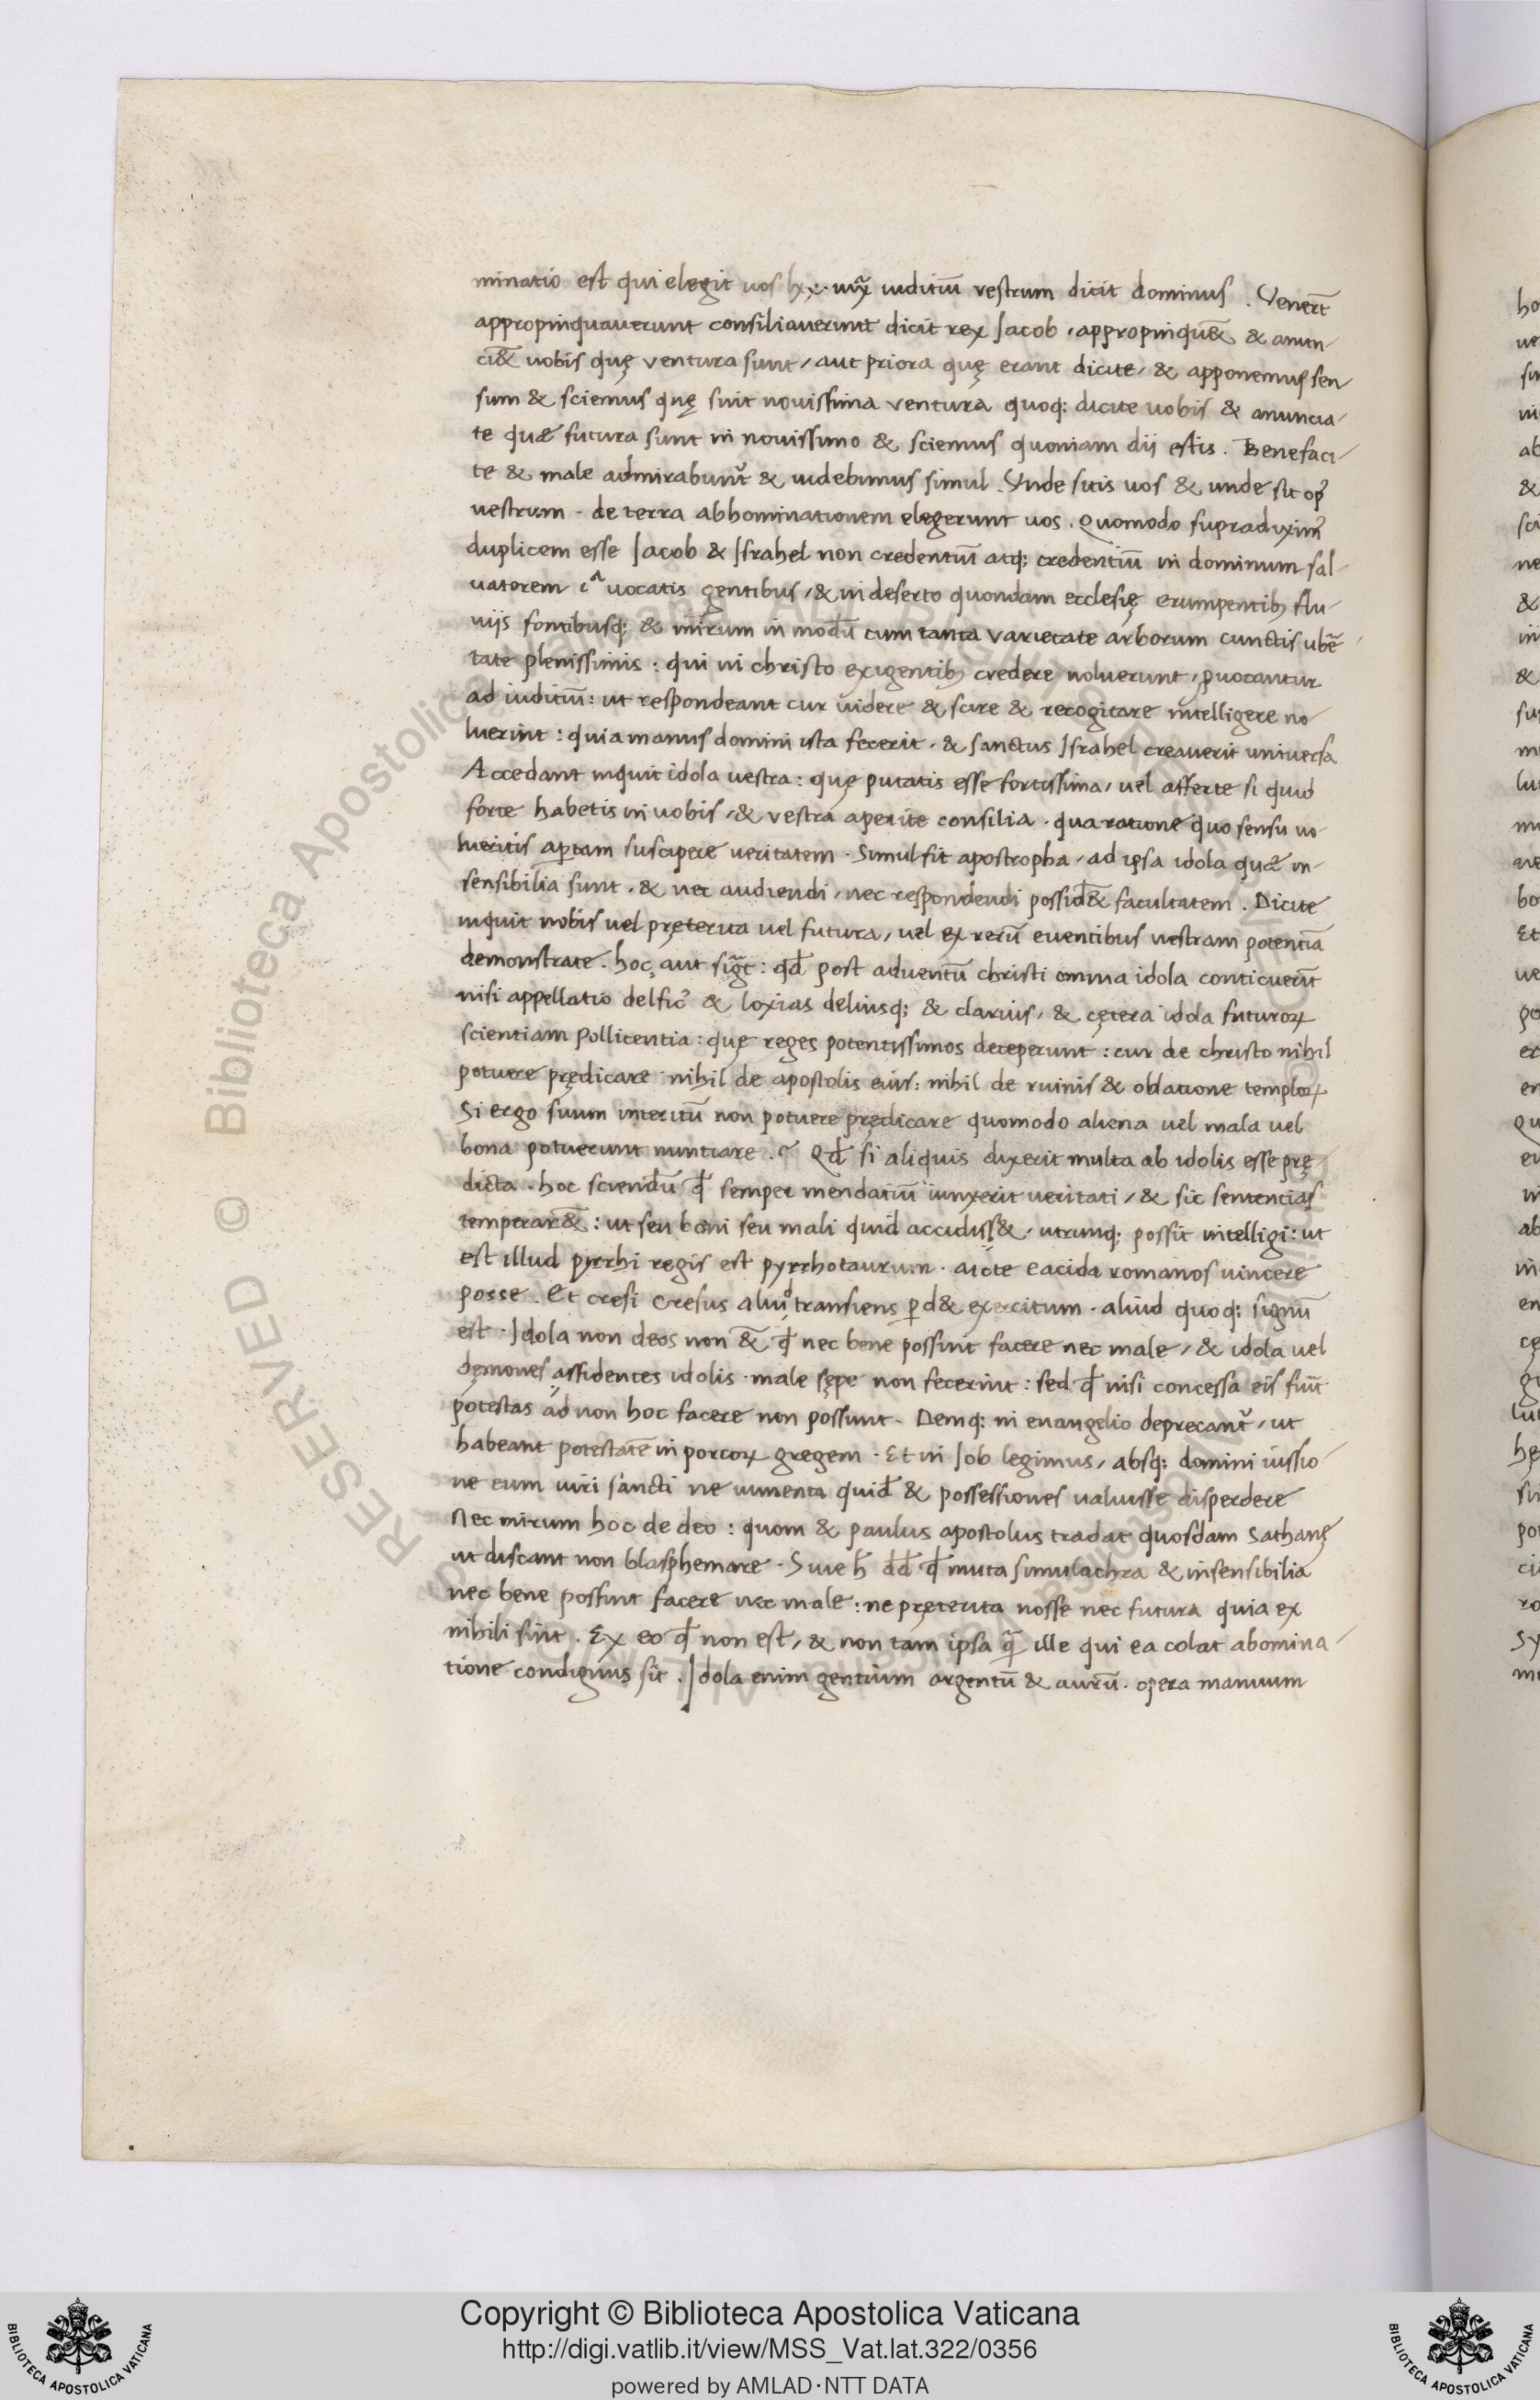 minatio est qui elegit uos lxx. iuditiū vestrum dicit dominus. Venert̄
appropinquauerunt consiliauerunt dicit rex Jacob, appropinqu&̄ & anun-
ci&̄ uobis quę ventura sunt, aut priora quę erant dicite, & apponemus sen
sum & sciemus quę sint nouissima ventura quoq; dicite uobis & anuncia-
te quæ futura sunt in nouissimo & sciemus quoniam dii estis. Benefaci-
te & male admirabunt̄ & uidebimus simul. Unde sitis uos & unde sit op9
uestrum. de terra abhominationem elegerunt uos. Quomodo supradixim9
duplicem esse Jacob & Israhel non credentiū atq; credentiū in dominum sal-
uatorem ita uocatis gentibus, & in deserto quondam ecclesię erumpentib; flu-
uijs fontibusq; & mirum in modū cum tanta varietate arborum cunctis ubē-
tate plenissimis: qui in christo exigentib; credere noluerunt, ꝓuocantur
ad iuditiū: ut respondeant cur uidere & scire & recogitare intelligere no-
luerint: quia manus domini ista fecerit. & sanctus Israhel creauerit uniuersa
Accedant inquit idola uestra: quę putatis esse fortissima, uel afferte si quid
forte habetis in uobis, & vestra aperite consilia. qua ratione quo sensu no-
lueritis aꝑtam suscipere ueritatem. Simul fit apostropha, ad ipsa idola quæ in-
sensibilia sunt. & nec audiendi, nec respondendi possid&̄ facultatem. Dicite
inquit nobis uel pręterita uel futura, uel ex rerū euentibus uestram potentiā
demonstrate. hoc aut sig̃t: qđ post aduentū christi omnia idola conticuerūt
nisi appellatio delfic9 & loxias deliusq; & clarius, & cętera idola futuroꝝ
scientiam pollicentia: quę reges potentissimos deceperunt: cur de christo nihil
potuere prędicare nihil de apostolis eius: nihil de ruinis & oblatione temploꝝ
Si ergo suum interitū non potuere prędicare quomodo aliena uel mala uel
bona potuerunt nuntiare.? Qđ si aliquis dixerit multa ab idolis esse prę-
dicta. hoc sciendū qđ semper mendatiū iunxerit ueritati, & sic sententias
temperar&̄: ut seu boni seu mali quid accidiss&, utrunq; possit intelligi: ut
est illud pyrrhi regis est pyrrhotaurum. aicte eacida romanos uincere
posse. Et cresi Cresus aliud transiens ꝑd& exercitum. aliud quoq; signū
est. Idola non deos non &̄ qđ nec bene possint facere nec male, & idola uel
dęmones assidentes idolis male sępe non fecerint: sed qđ nisi concessa eis fuit̄
potestas ad non hoc facere non possunt. Demq; in euangelio deprecant̄, ut
habeant potestatē in porcoꝝ gregem. Et in Job legimus, absq; domini iussio-
ne eum uiri sancti ne iumenta quid̄ & possessiones ualuisse disperdere
Nec mirum hoc de deo: quom & paulus apostolus tradat quosdam Sathanę
ut discant non blasphemare. Siue h̄ dđ qđ muta simulachra & insensibilia
nec bene possint facere nec male: ne pręterita nosse nec futura quia ex
nihili sint. Ex eo qđ non est, & non tam ipsa q̃ ille qui ea colat abomina-
tione condignus sit. Idola enim gentium argentū & aurū. opera manuum
Copyright © Biblioteca Apostolica Vaticana
http://digi.vatlib.it/view/MSS_Vat.lat.322/0356
powered by AMLAD·NTT DATA